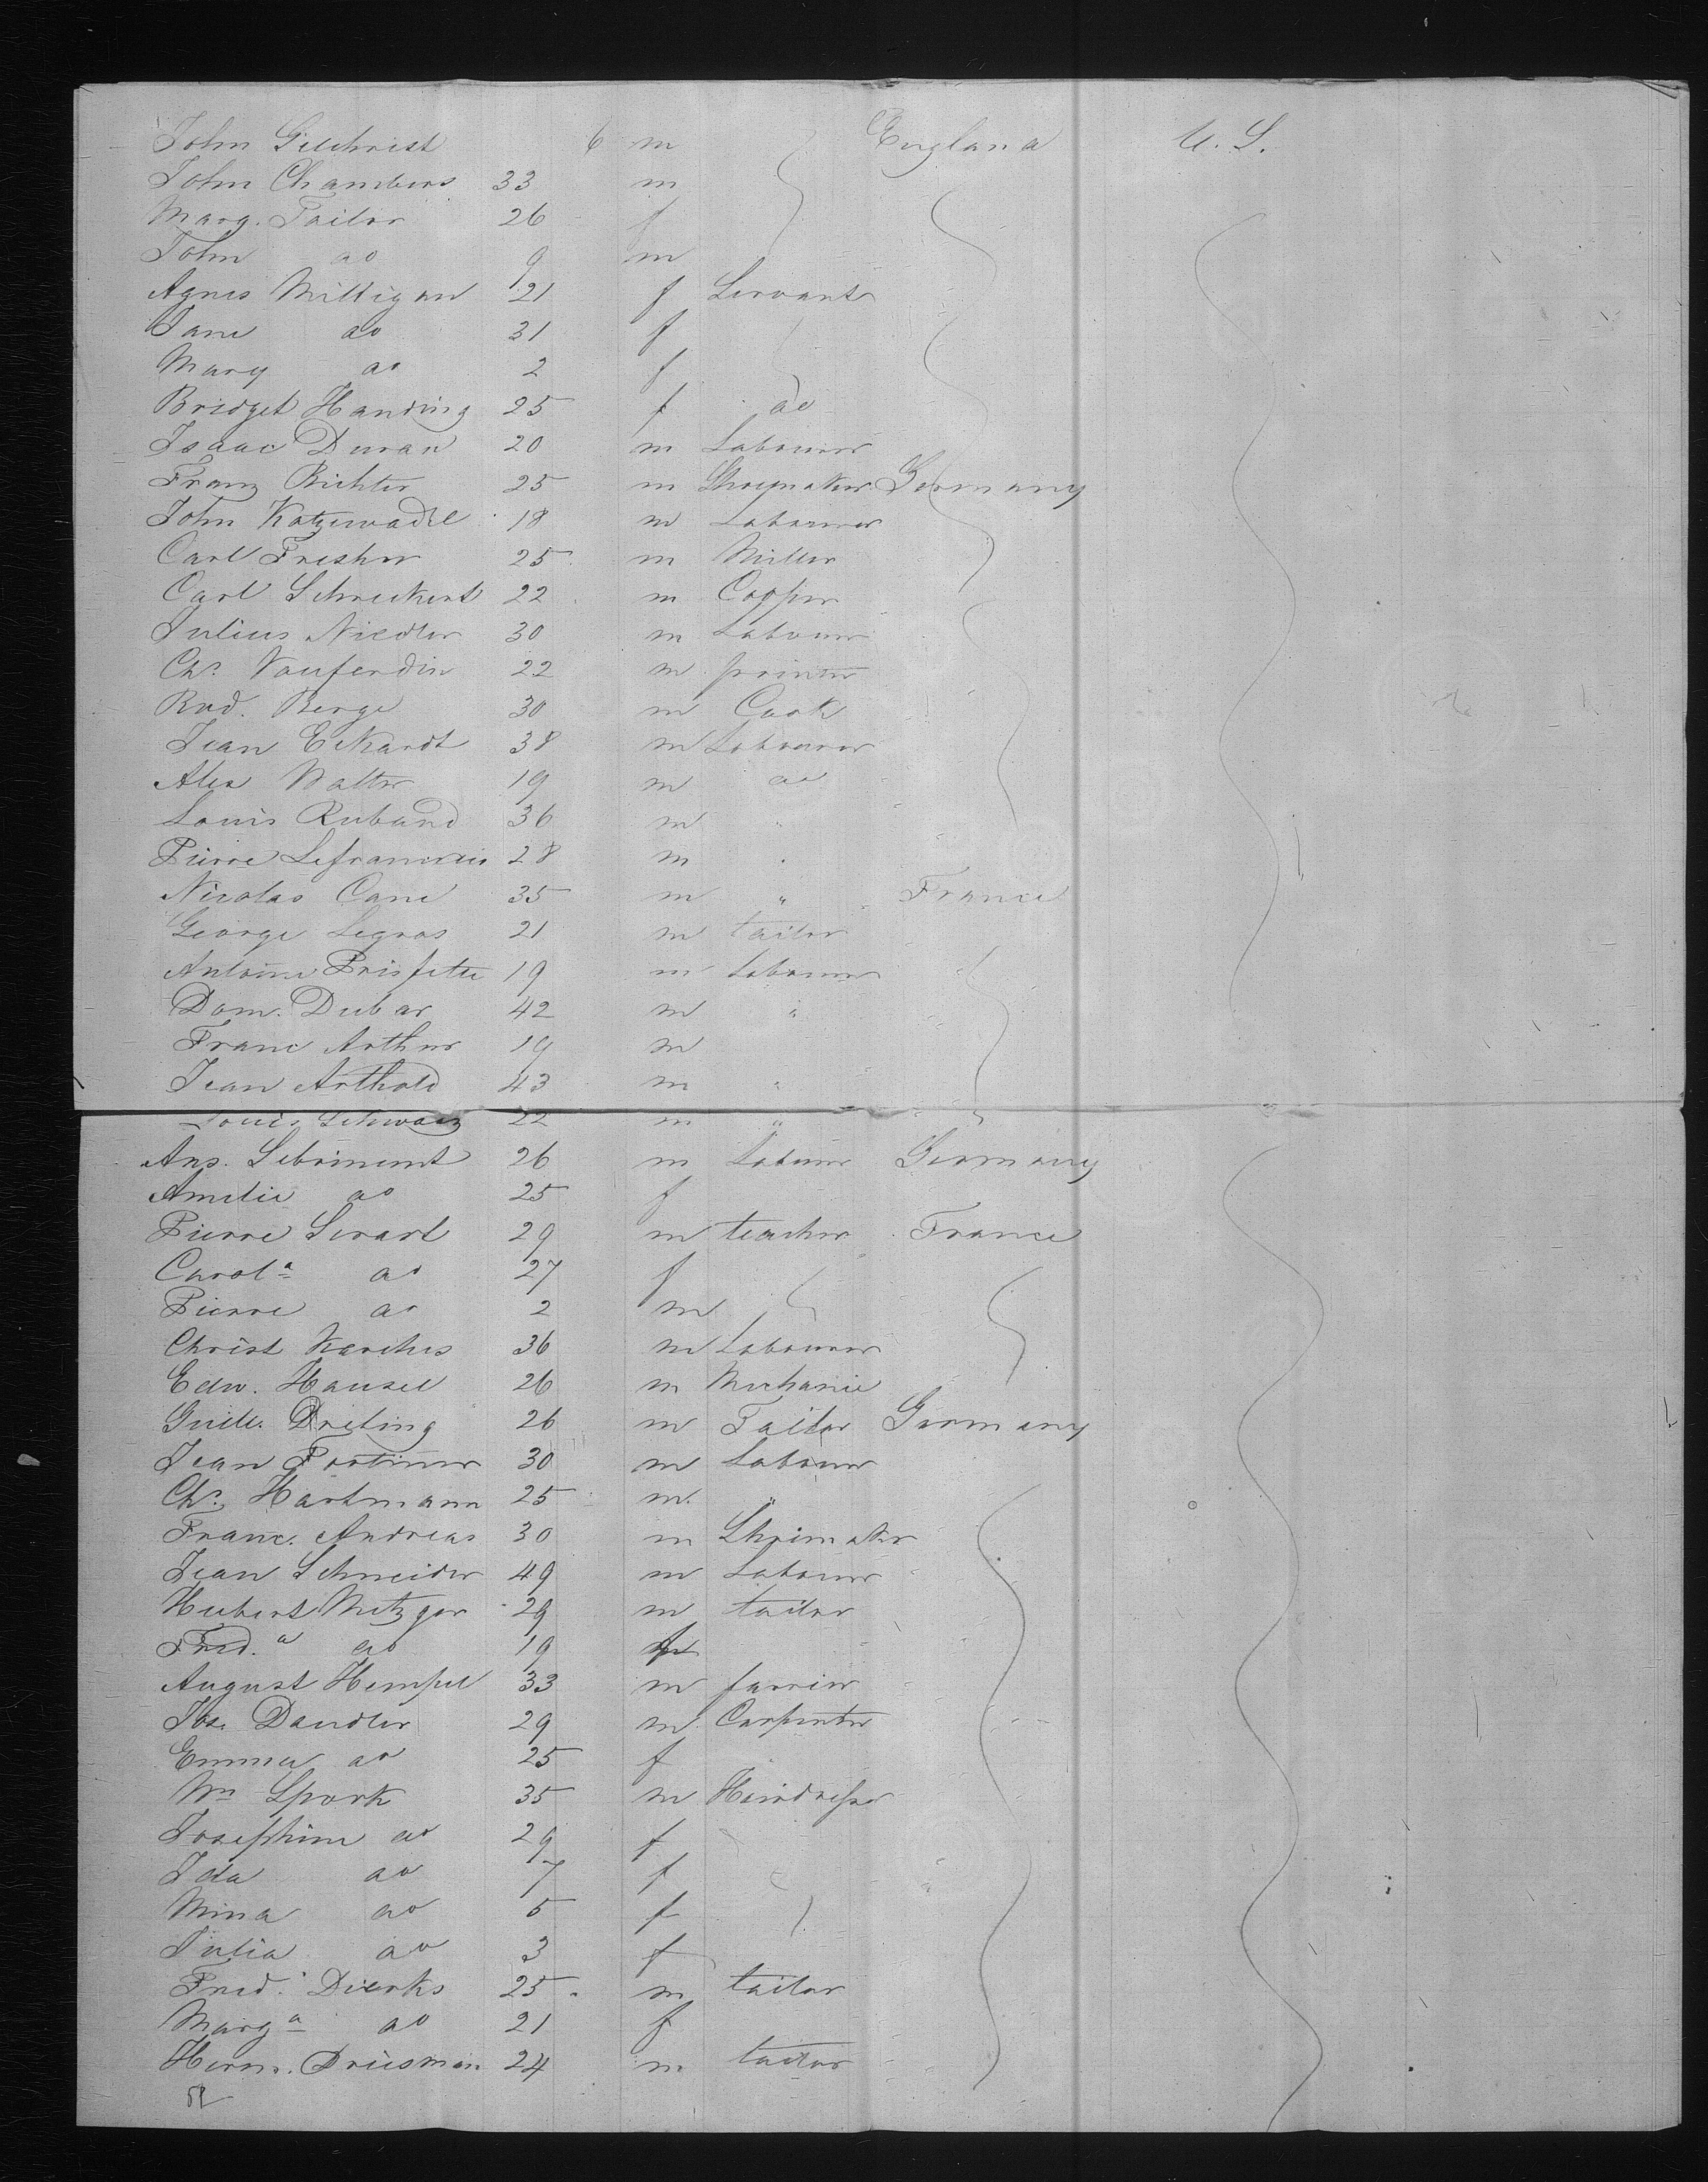 John Gilchrist 6 m England U. S.
John Chambers 33 m
Marg. Tailor 26 f
John do 9 m
Agnes Milligan 21 f Servant
Jane do 31 f
Mary do 2 f
Bridget Handing 25 f do
Isaac Duran 20 m Labourer
Franz Richter 25 m Shoemaker Germany
John Katzewadel 18 m Labourer
Carl Fresher 25 m Miller
Carl Schreckert 22 m Cooper
Julius Niedler 30 m Labourer
Chs. Vauferdin 22 m printer
Rud. Berge 30 m Cook
Jean Eckardt 38 m Labourer
Alex Walter 19 m do
Louis Ruband 36 m "
Pierre Lefrancois 28 m "
Nicolas Cane 35 m " France
George Legras 21 m tailor
Antoine Prisfette 19 m Labourer
Dom. Dubar 42 m "
Franc Arthur 19 m
Jean Arthold 43 m "
Louis Schwarz 22 m "
Ans. Sebriment 26 m Labourer Germany
Amelie do 25 f
Pierre Sirart 29 m teacher France
Carola do 27 f
Pierre do 2 m
Christ Karches 36 m Labourer
Edw. Hansel 26 m Mechanic
Guill. Dreling 26 m Tailor Germany
Jean Portiner 30 m Labourer
Chs. Hartmann 25 m "
Franc. Andreas 30 m Shoimaker
Jean Schneider 49 m Labourer
Hubert Metzger 29 m tailor
Fred.a do 19 f
August Hempel 33 m farrier
Jos. Dandler 29 m Carpenter
Emma do 25 f
Wm Spork 35 m Hairdresser
Josephine do 29 f
Ida do 7 f
Mina do 5 f
Julia do 3 f
Fred. Dierks 25 m tailor
Marga do 21 f
Herm. Driesman 24 m tailor
52